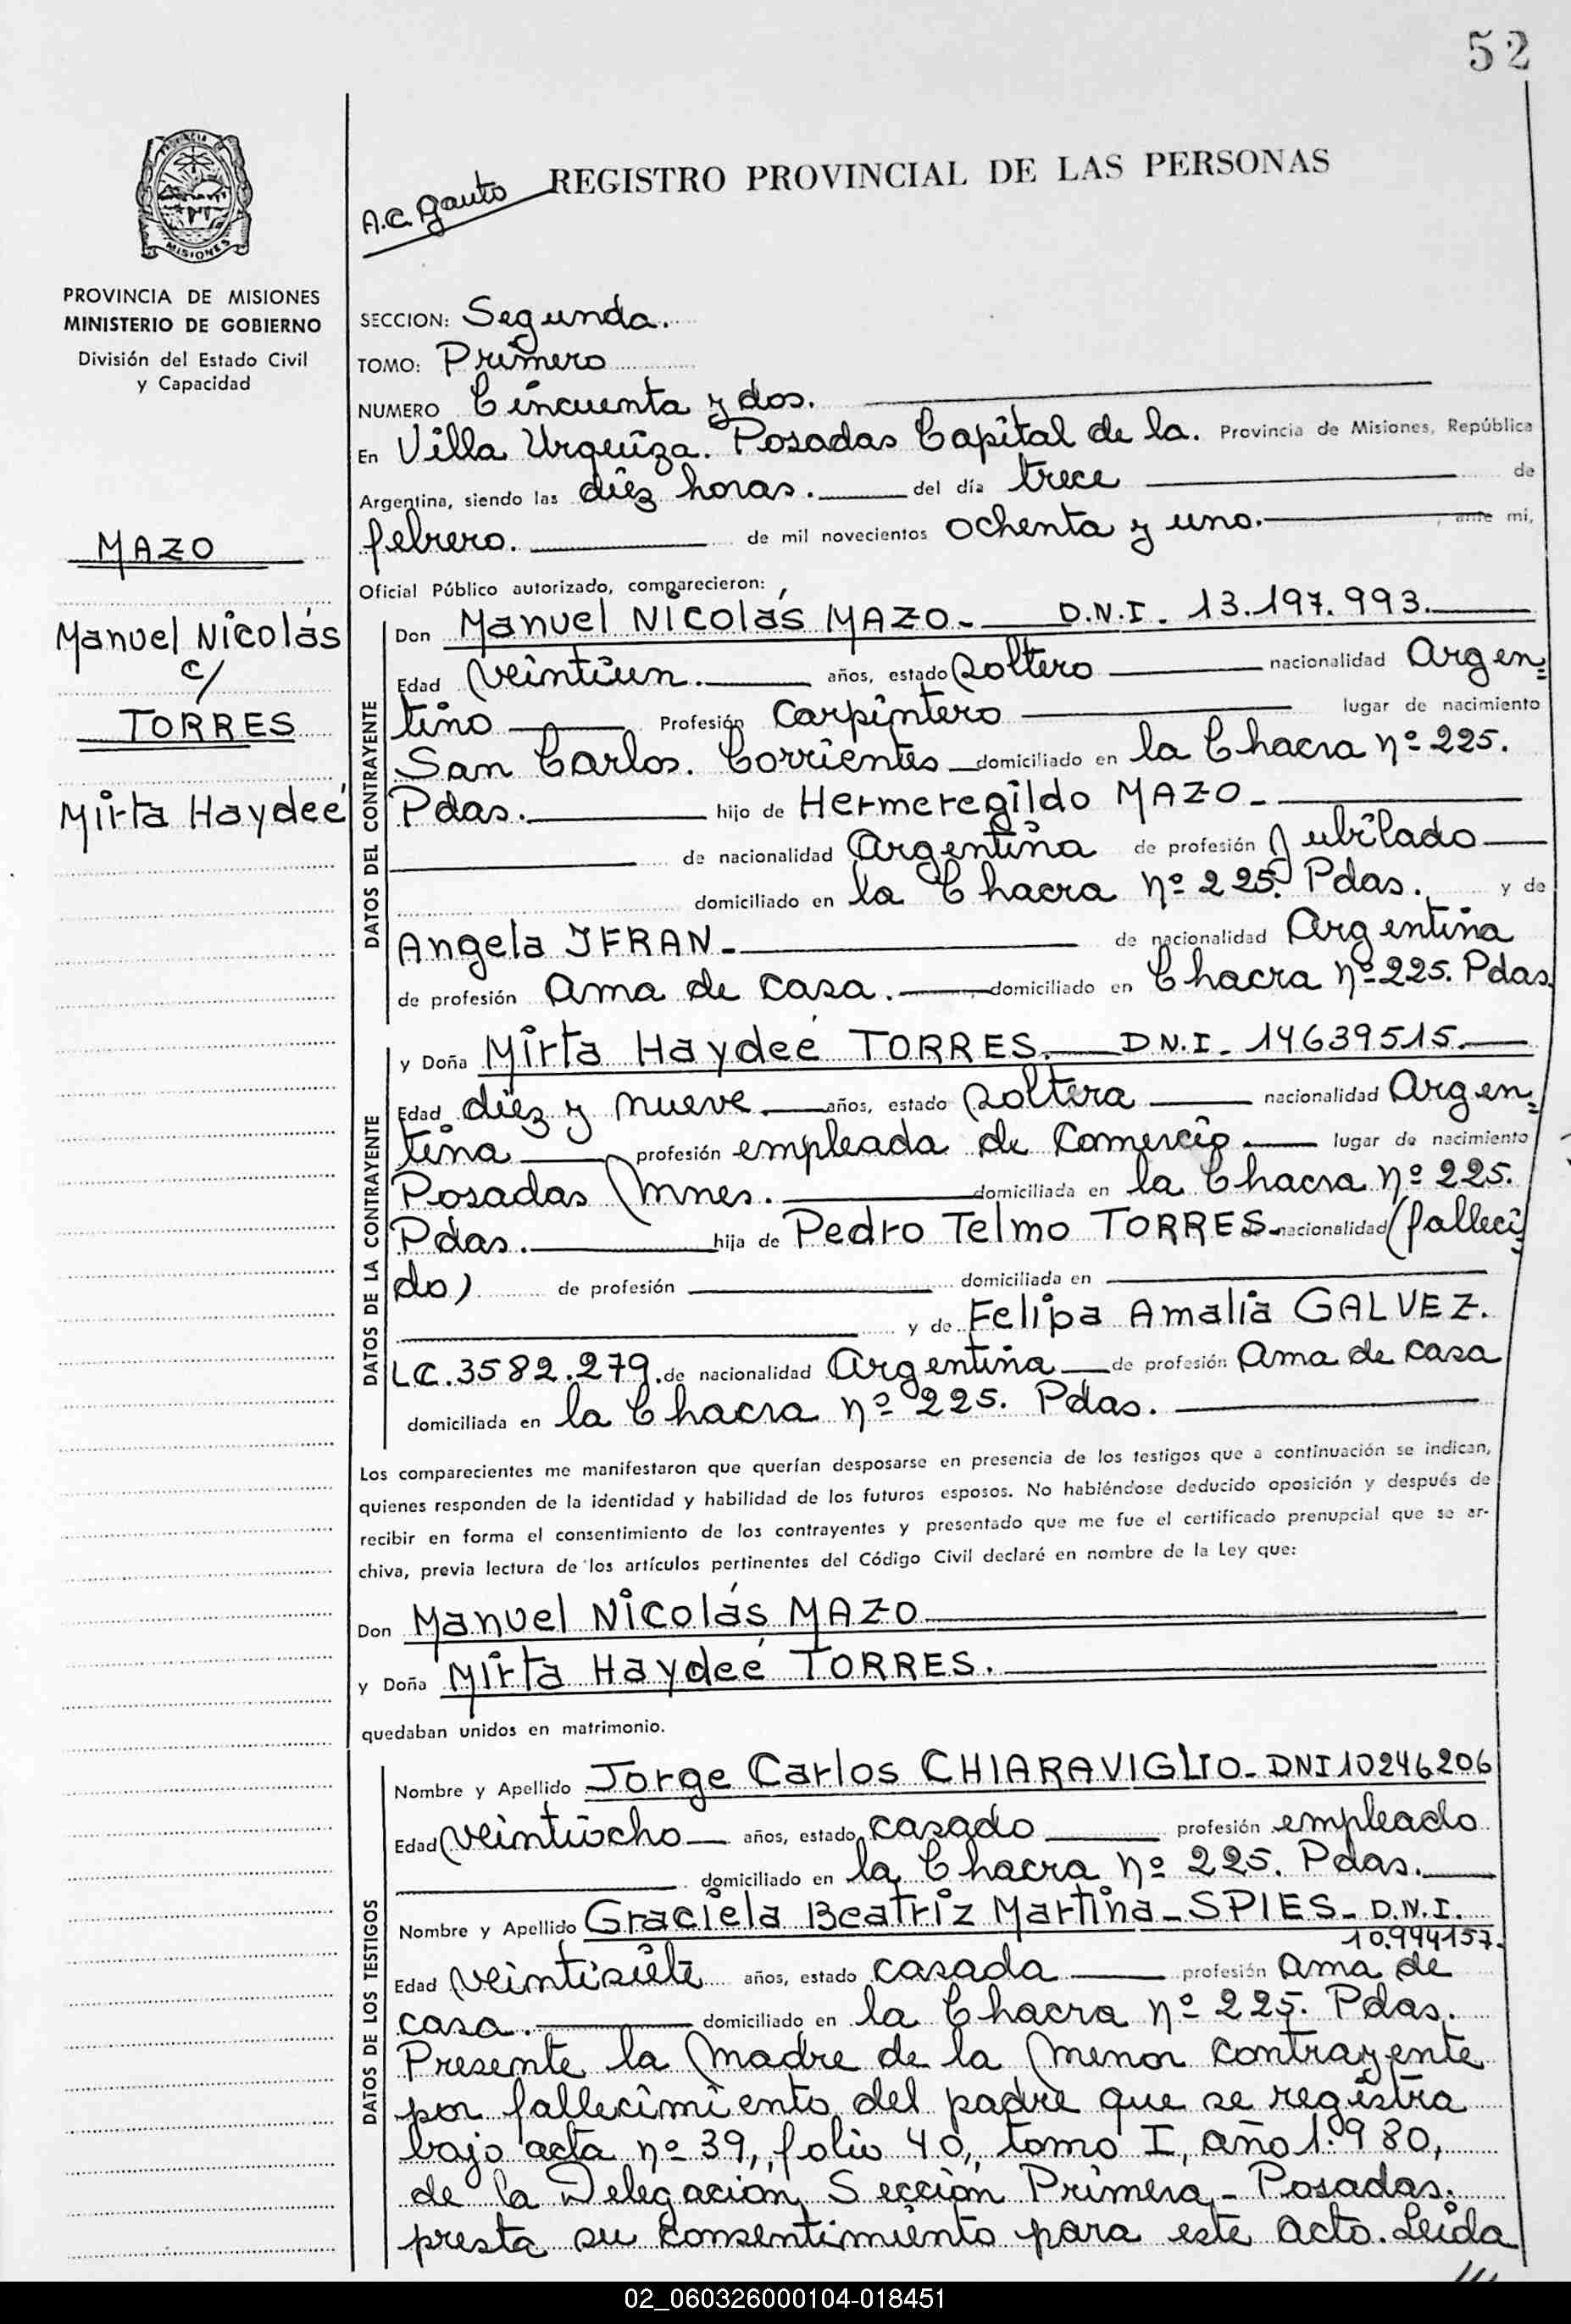 52
REGISTRO PROVINCIAL DE LAS PERSONAS
A.C. Gauto
PROVINCIA
MISIONES
PROVINCIA DE MISIONES
MINISTERIO DE GOBIERNO
División del Estado Civil
y Capacidad
MAZO
Manuel Nicolás
c/
TORRES
Mirta Haydeé
SECCION: Segunda.
TOMO: Primero
NUMERO Cincuenta y dos.
En Villa Urquiza. Posadas Capital de la. Provincia de Misiones, República
Argentina, siendo las diez horas. del día trece de
febrero. de mil novecientos ochenta y uno. , ante mi,
Oficial Público autorizado, comparecieron:
DATOS DEL CONTRAYENTE
Don Manuel Nicolás MAZO- D.N.I. 13.197.993.
Edad veintiun. años, estado soltero nacionalidad Argen=
tino Profesión Carpintero lugar de nacimiento
San Carlos. Corrientes domiciliado en la Chacra nº 225.
Pdas. hijo de Hermeregildo MAZO-
de nacionalidad Argentina de profesión Jubilado
domiciliado en la Chacra nº 225. Pdas. y de
Angela IFRAN- de nacionalidad Argentina
de profesión Ama de casa. domiciliado en Chacra nº 225. Pdas.
DATOS DE LA CONTRAYENTE
y Doña Mirta Haydeé TORRES. D.N.I. 14639515.
Edad diez y nueve. años, estado soltera nacionalidad Argen=
tina profesión empleada de Comercio. lugar de nacimiento
Posadas Mnes. domiciliada en la Chacra nº 225.
Pdas. hija de Pedro Telmo TORRES- nacionalidad (falleci=
do) de profesión domiciliada en
y de Felipa Amalia GALVEZ.
LC. 3582.279. de nacionalidad Argentina de profesión Ama de casa
domiciliada en la Chacra nº 225. Pdas.
Los comparecientes me manifestaron que querían desposarse en presencia de los testigos que a continuación se indican,
quienes responden de la identidad y habilidad de los futuros esposos. No habiéndose deducido oposición y después de
recibir en forma el consentimiento de los contrayentes y presentado que me fue el certificado prenupcial que se ar-
chiva, previa lectura de los artículos pertinentes del Código Civil declaré en nombre de la Ley que:
Don Manuel Nicolás MAZO
y Doña Mirta Haydeé TORRES.
quedaban unidos en matrimonio.
DATOS DE LOS TESTIGOS
Nombre y Apellido Jorge Carlos CHIARAVIGLIO- DNI 10246206
Edad veintiocho años, estado casado profesión empleado
domiciliado en la Chacra nº 225. Pdas.
Nombre y Apellido Graciela Beatriz Martina- SPIES- D.N.I.
10.944157.
Edad veintisiete años, estado casada profesión Ama de
casa. domiciliado en la Chacra nº 225. Pdas.
Presente la Madre de la Menor contrayente
por fallecimiento del padre que se registra
bajo acta nº 39, folio 40, tomo I, año 1.980,
de la Delegación Sección Primera- Posadas.
presta su consentimiento para este acto. Leida
///
02_060326000104-018451